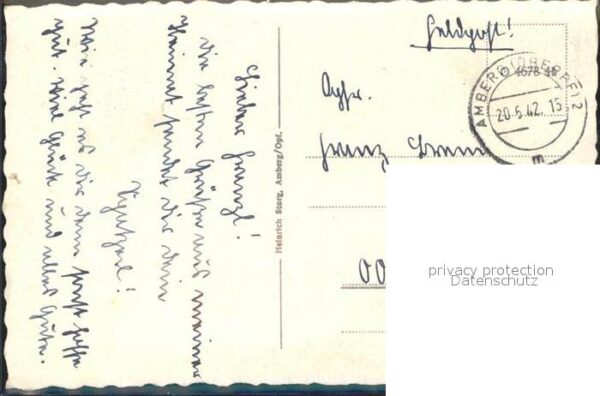 Feldpost!
4678 45
AMBERG (OBERPF) 2
20.5.42. 15
m
Ogfr.
Franz
00
Heinrich Storg, Amberg/Opf.
Lieber Franzl!
Die besten Grüße aus meiner
Heimat sendet dir dein
Wie geht es dir denn sonst hoffe
gut. Viel Glück und alles Gute.
privacy protection
Datenschutz